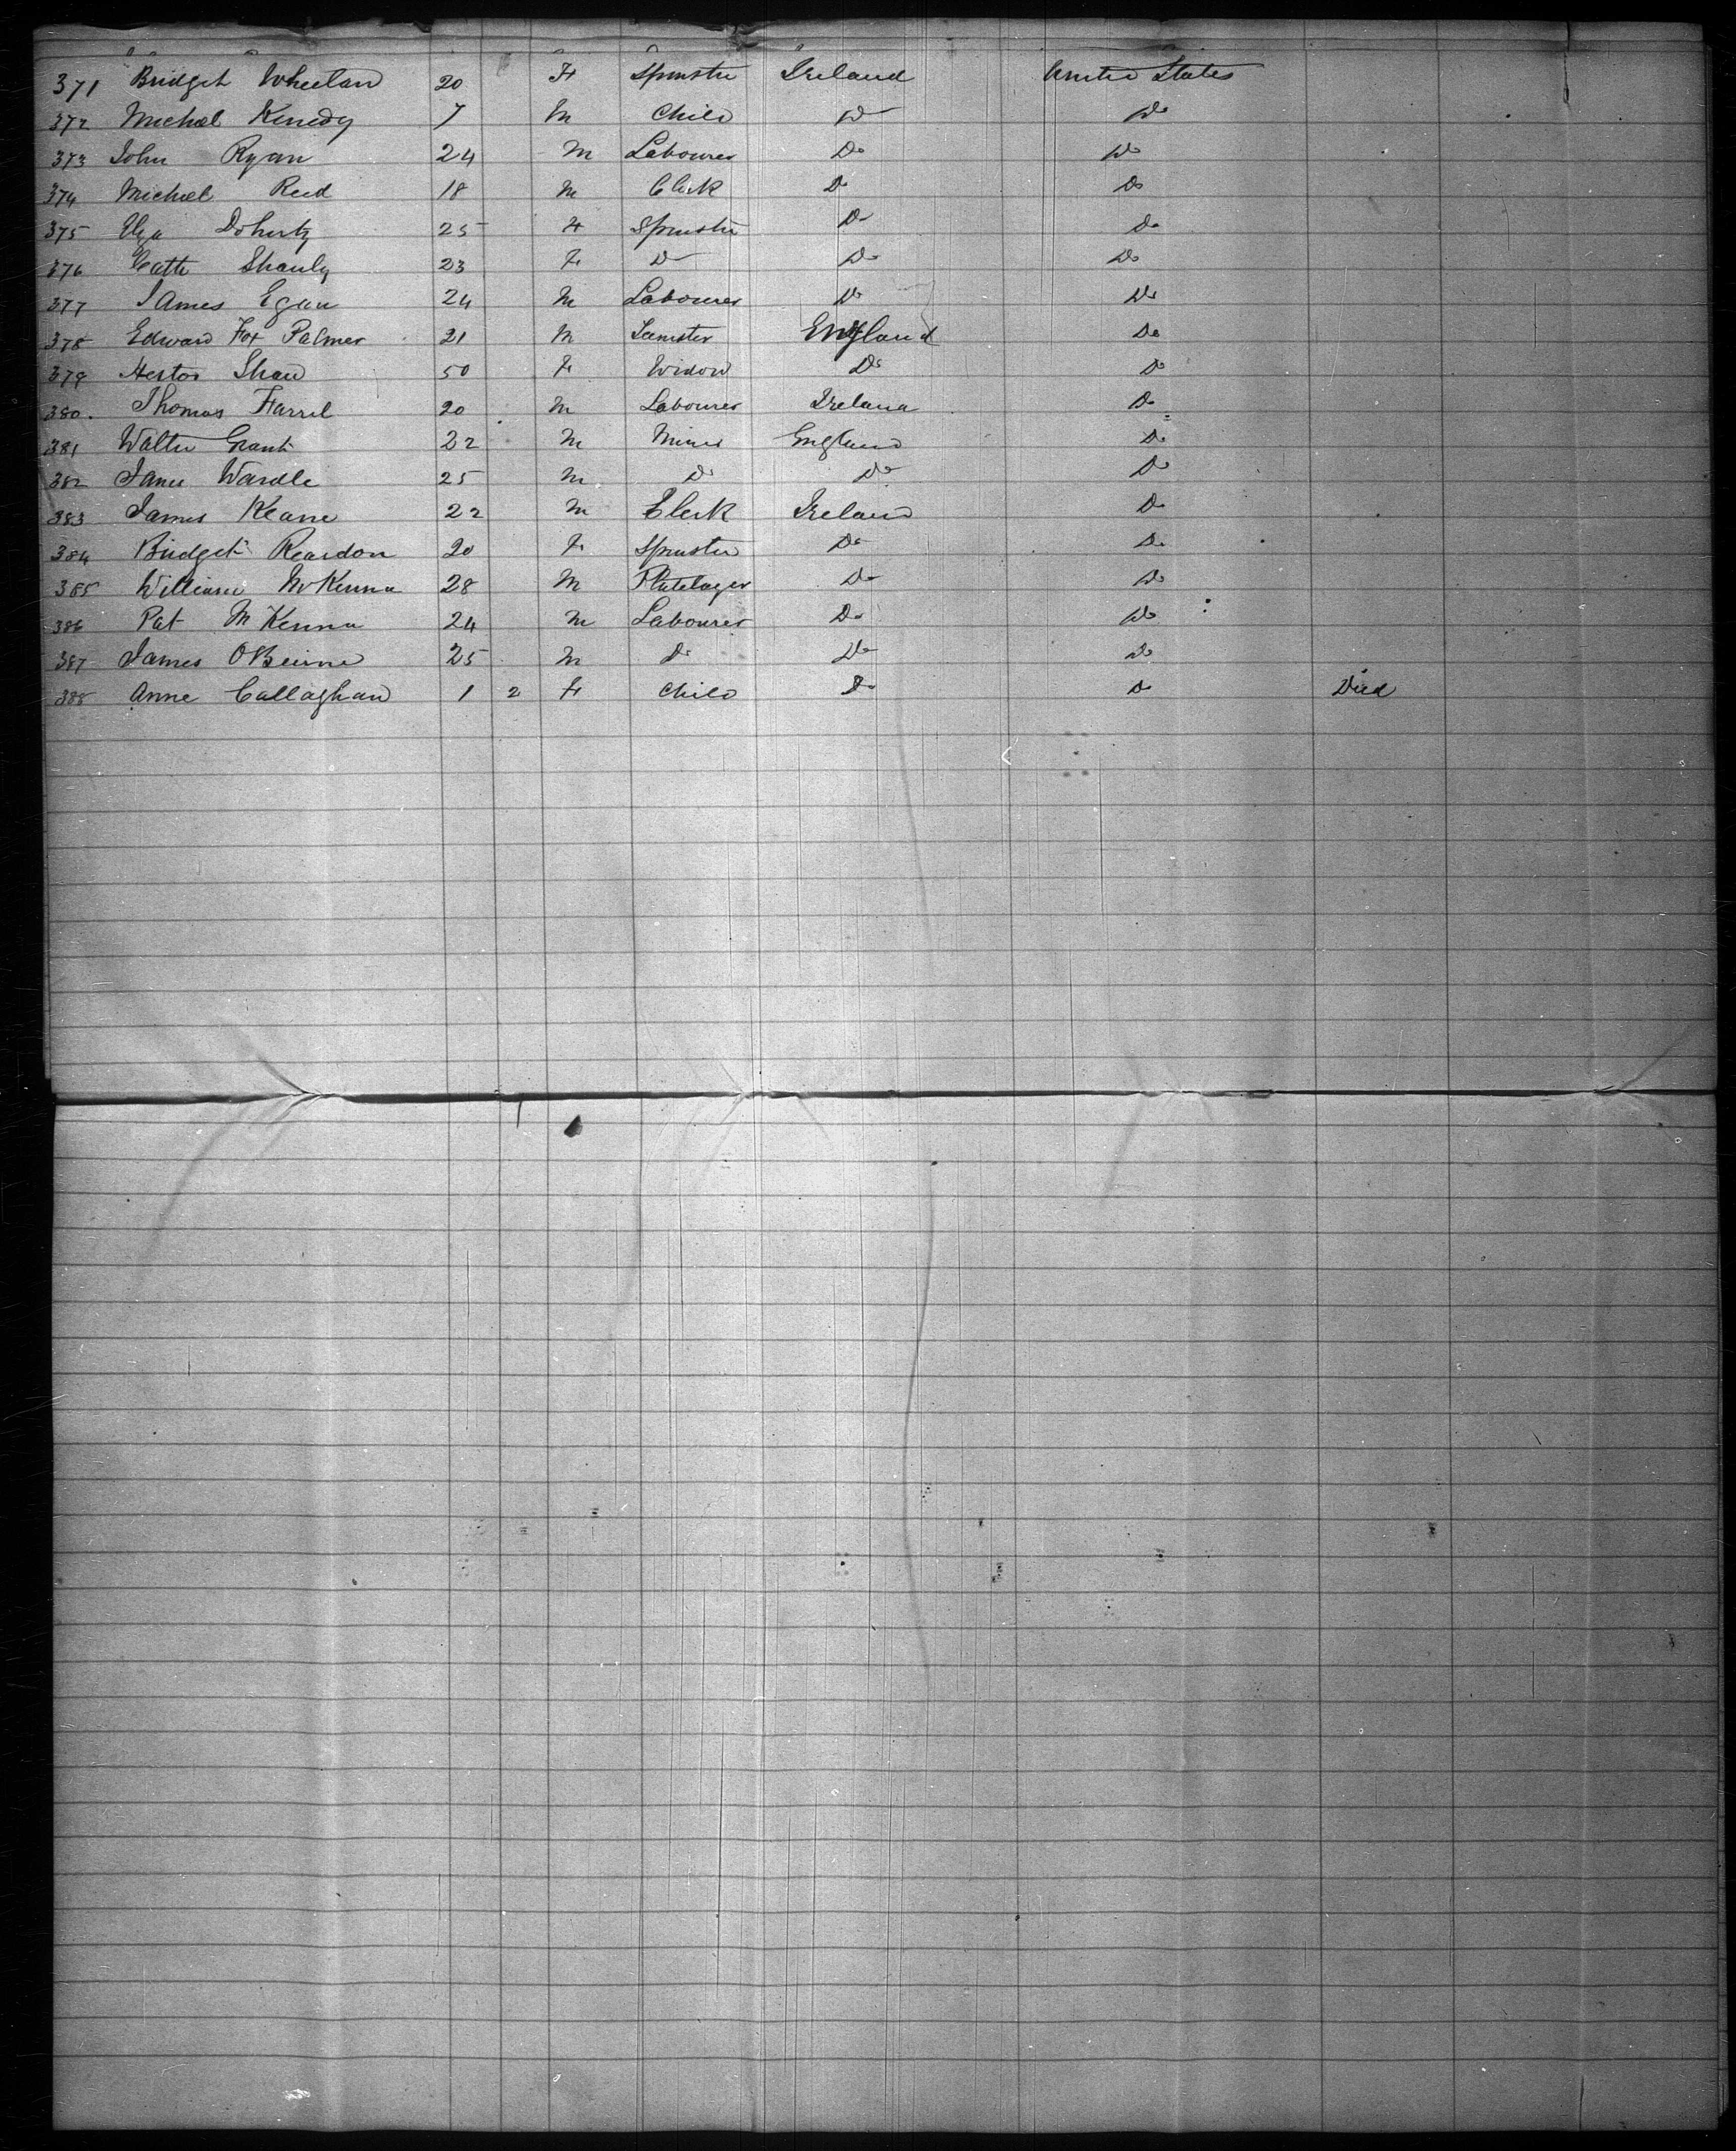 371 Bridget Wheelan 20 F Spinster Ireland United States
372 Michael Kenedy 7 M Child Do Do
373 John Ryan 24 M Labourer Do Do
374 Michael Reed 18 M Clerk Do Do
375 Doherty 25 F Spinster Do Do
376 Cath Shanly 23 F Do Do Do
377 James Egan 24 M Labourer Do Do
378 Edward Fox Palmer 21 M England Do
379 Hester Shaw 50 F Widow Do Do
380. Thomas Farrel 20 M Labourer Ireland Do
381 Walter Grant 22 M Miner England Do
382 James Wardle 25 M Do Do Do
383 James Keane 22 M Clerk Ireland Do
384 Bridget Reardon 20 F Spinster Do Do
385 William McKenna 28 M Platelayer Do Do
386 Pat McKenna 24 M Labourer Do Do
387 James OBeirne 25 M Do Do Do
388 Anne Callaghan 1 2 F Child Do Do Died